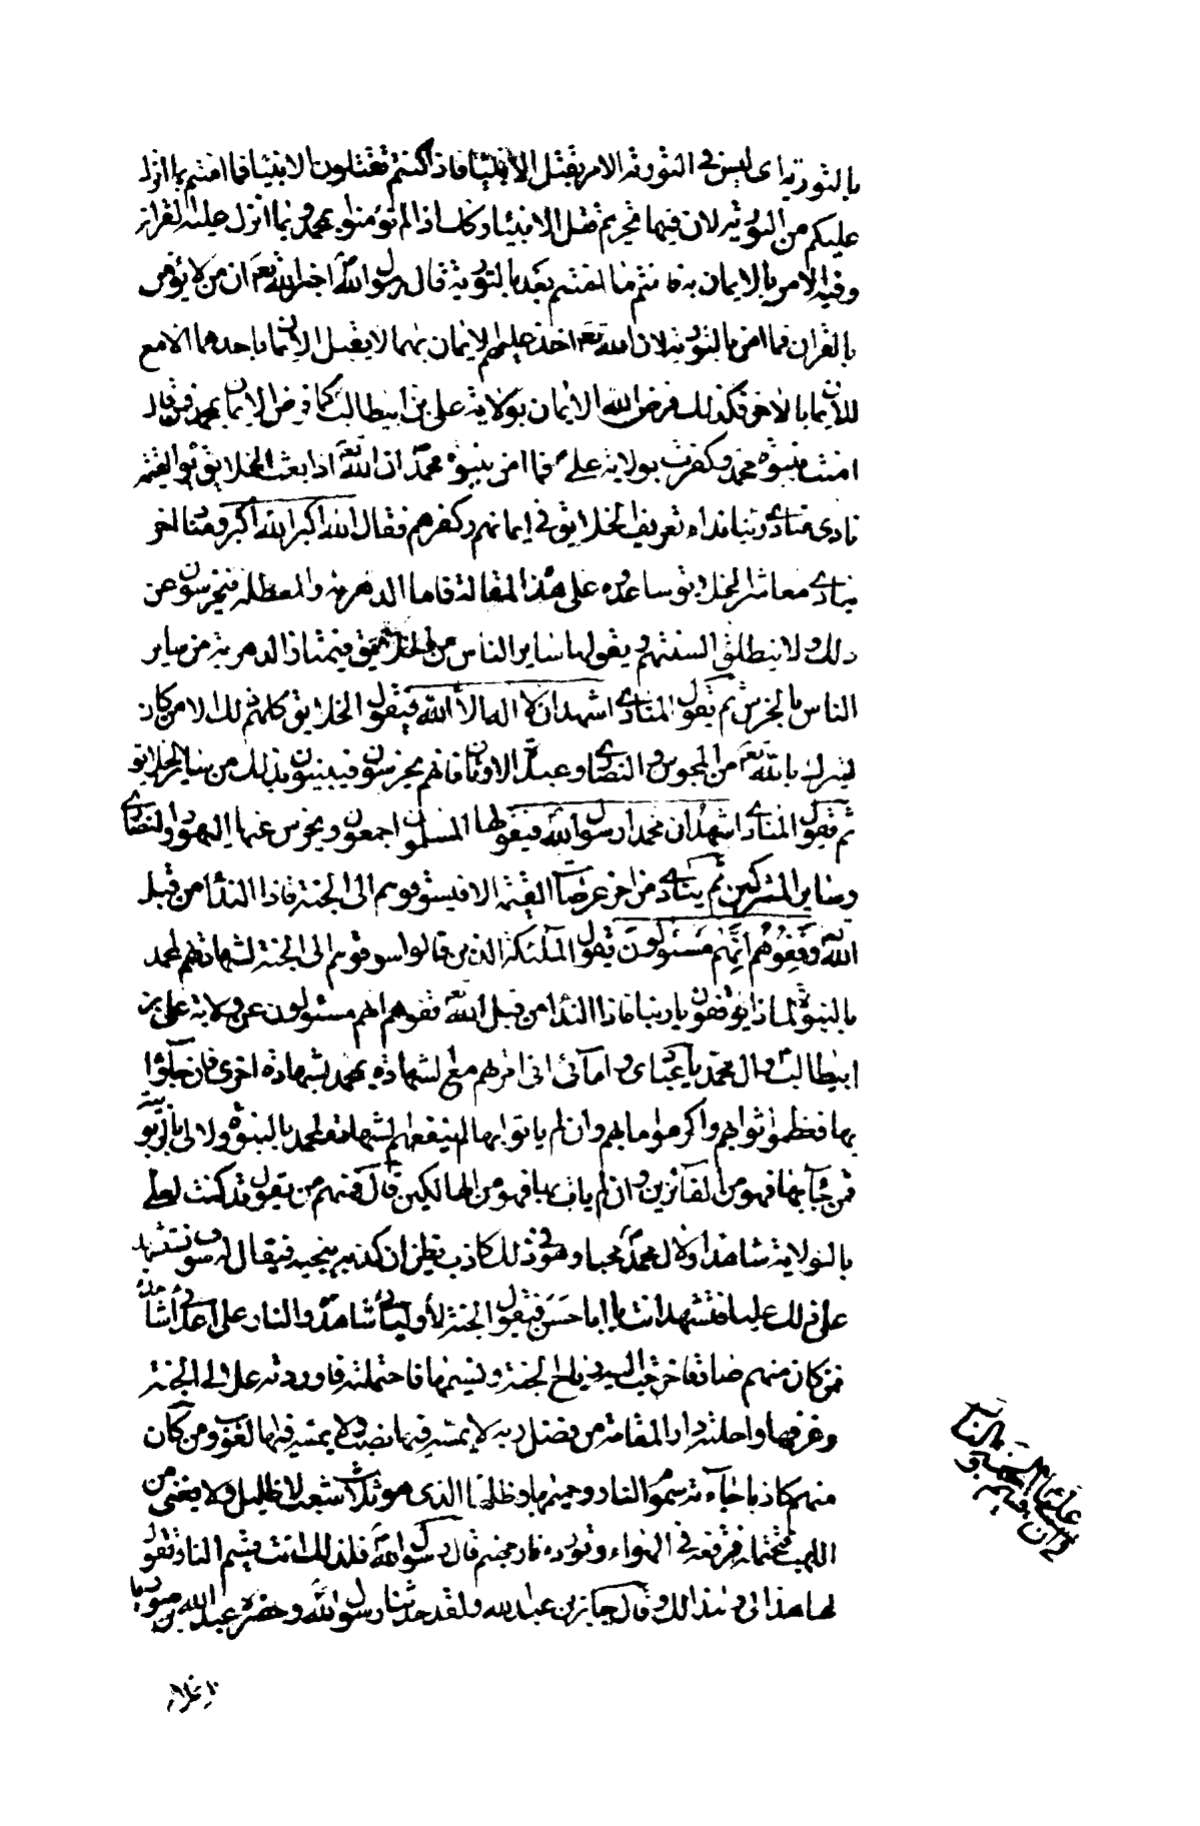 بالتورية اى ليس فى التورية الامر بقتل الانبياء فاذا كنتم تقتلون الانبياء فما امنتم بما انزل
عليكم من التورية لان فيها تحريم قتل الانبياء وكذلك اذا لم تؤمنوا بمحمد وبما انزل عليه القران
وفيه الامر بالايمان به فانتم ما امنتم بعد بالتورية قال رسول الله اخبر الله تعم ان من لا يؤمن
بالقران فما امن بالتورية لان الله تعم اخذ عليهم الايمان بهما لا يقبل الايمان باحدهما الا مع
الايمان بالاخر فكذلك فرض الله الايمان بولاية على بن ابيطالب كما فرض الايمان بمحمد فمن قال
امنت بنبوة محمد وكفرت بولاية على فما امن بنبوة محمد ان الله تعم اذا بعث الخلايق يوم القيمة
نادى منادى ربنا نداء تعريف الخلايق فى ايمانهم وكفرهم فقال الله اكبر الله اكبر ومناد اخر
ينادى معاشر الخلايق ساعدوه على هذه المقالة فاما الدهرية والمعطلة فيخرسون عن
ذلك ولا ينطلق السنتهم ويقولها ساير الناس من الخلايق فيمتاز الدهرية من ساير
الناس بالخرس ثم يقول المنادى اشهد ان لا اله الا الله فيقول الخلايق كلهم ذلك الا من كان
يشرك بالله تعم من المجوس والنصارى وعبدة الاوثان فانهم يخرسون فيبينون بذلك من ساير الخلايق
ثم يقول المنادى اشهد ان محمدا رسول الله فيقولها المسلمون اجمعون ويخرس عنها اليهود والنصارى
وساير المشركين ثم ينادى من اخر عرصات القيمة الا فسوقوهم الى الجنة فاذا النداء من قبل
الله وَقِفُوهُم اِنَّهُم مَسئولُون يقول الملئكة الذين قالوا سوقوهم الى الجنة لشهادتهم لمحمد
بالنبوة لماذا يوقفون يا ربنا فاذا النداء من قبل الله تعم قفوهم انهم مسئولون عن ولاية على بن
ابيطالب وال محمد يا عبادى وامائى انى امرتهم مع الشهادة بمحمد بشهادة اخرى فان جاؤا
بها فعظموا ثوابهم واكرموا مابهم وان لم ياتوا بها لم ينفعهم الشهادة لمحمد بالنبوة ولا لى بالربوبية
فمن جاء بها فهو من الفائزين وان لم يات بها فهو من الهالكين قال فمنهم من يقول قد كنت لعلى
بالولاية شاهدا ولال محمد محبا وهو فى ذلك كاذب يظن ان كذبه ينجيه فيقال له سوف نستشهد
على ذلك عليا فتشهد انت يا ابا حسن فتقول الجنة لأوليائى شاهدة والنار على اعدائى شاهدة
فمن كان منهم صادقا خرجت اليه رياح الجنة ونسيمها فاحتملته فاوردته علالى الجنة
وغرفها واحلته دار المقامة من فضل ربه لا يمسه فيها نصب ولا يمسه فيها لغوب ومن كان
منهم كاذبا جاءته سموم النار وحميمها وظلها الذى هو ثلاث شعب لا ظليل ولا يغنى من
اللهب فتحمله فترفعه فى الهواء وتورده نار جهنم قال رسول الله فلذلك انت قسيم النار تقول
لها هذا لى وهذا لك وقال جابر بن عبد الله ولقد حدثنا رسول الله وحضره عبد الله بن صوريا